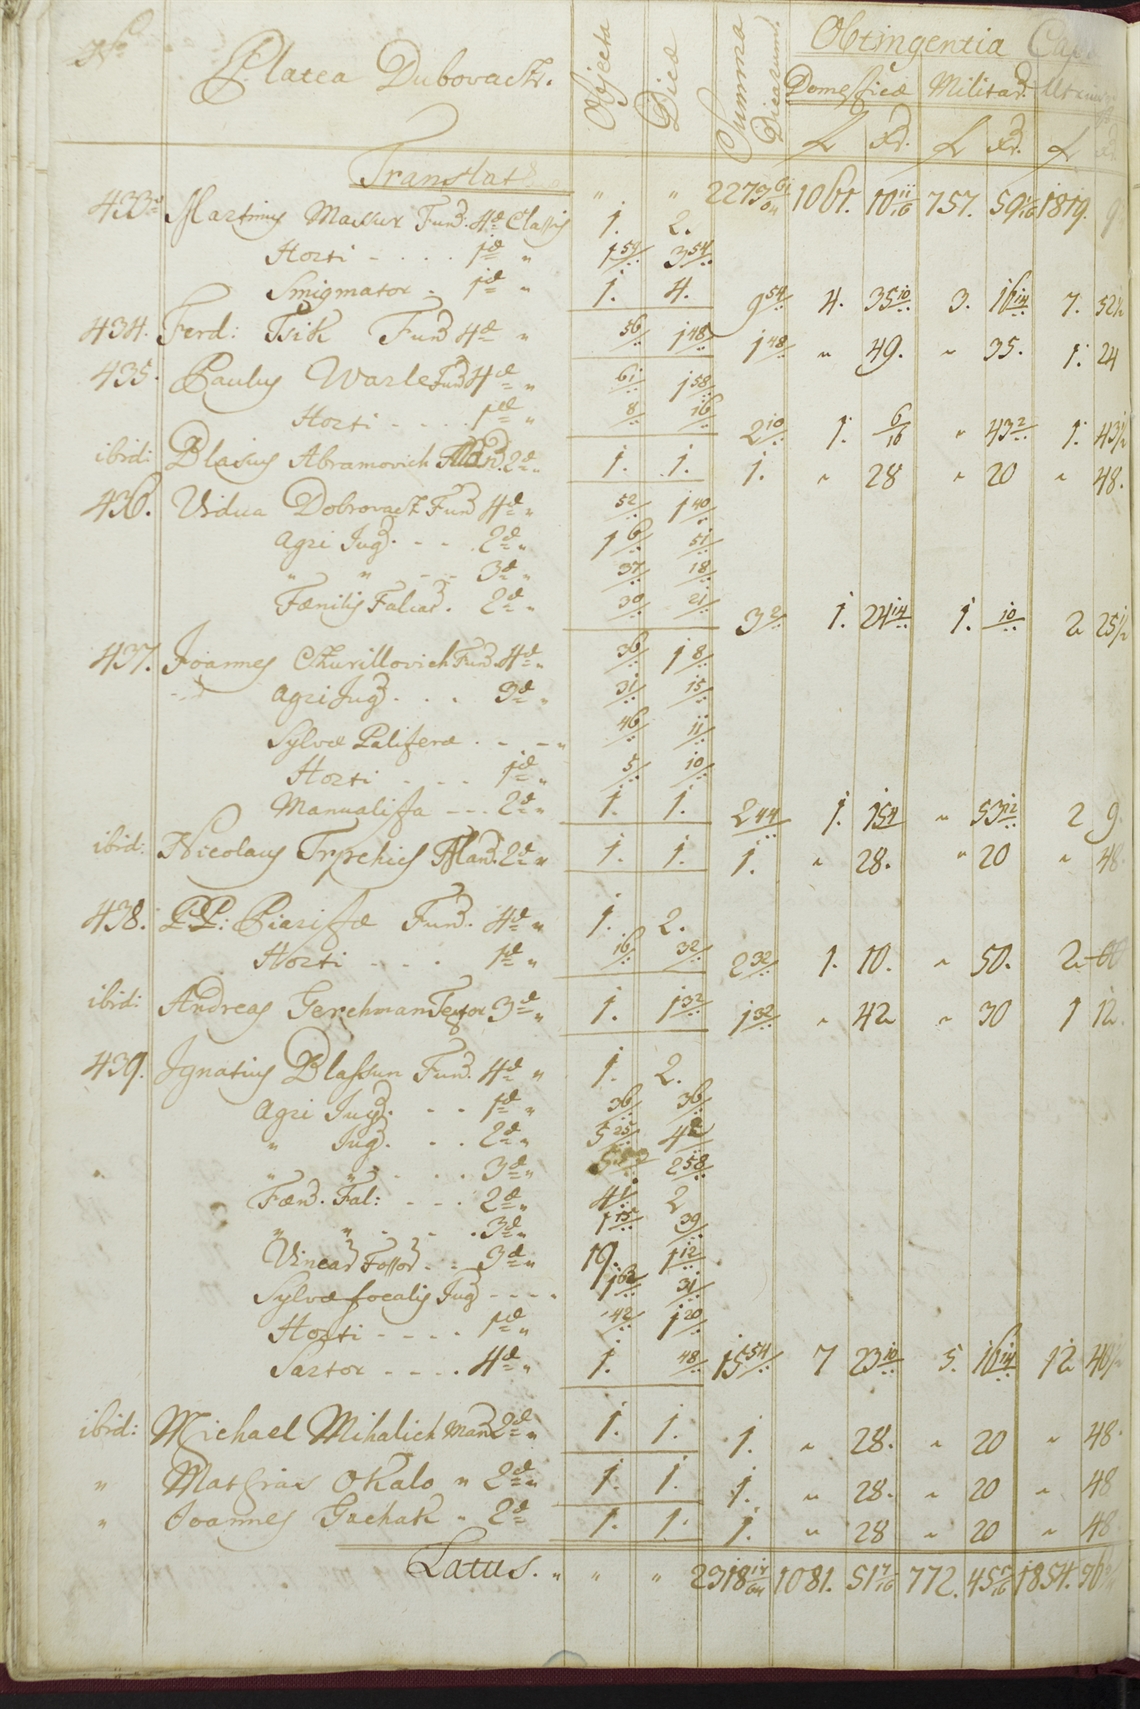 No Platea Dubovacz. Objecta Dicæ Summa Dicarum Obtingentia
Domesticæ Militar.
f. xr. f. xr. f. xr.
Translat " " 2273 61/64 1061. 10 11/16 757. 59 1819. 9
433. Martinus Macsux Fund. 4æ Classis 1. 2.
Horti - . . . 1æ " 1 54 3 54
Smigmator . 1æ " 1. 4. 9 54 4. 35 10 3. 16 14 7. 52
434. Ferd: Tsik Fund 4æ " 56 1 48 1 48 " 49. " 35. 1. 24
435. Paulus Warle Fund 4æ " 61 1 58
Horti - . . . 1æ " 8 16 2 10 1. 6/16 " 43 2 1. 43
ibid: Blasius Abramovich 2æ " 1. 1. 1. " 28 " 20 " 48.
436. Vidua Dobrovacz Fund 4æ " 52 1 40
Agri Jug. - - . 2æ " 1 6 51
" " - - 3æ " 37 18
Fænilis Falcat. 2æ " 30 21 3 2 1. 24 14 1. 10 2 25
437. Joannes Czurillovich Fund. 4æ " 36 1 8
Agri Jug . . . 3æ " 31 15
Sylvæ Paliferæ . - . - " 46 11
Horti - - - 1æ " 5 10
Manualista - - - 2æ " 1. 1. 2 44 1. 15 4 " 53 12 2 9.
ibid: Nicolaus 2æ " 1. 1. 1. " 28. " 20 " 48
438. PP: Piaristæ Fund. 4æ " 1. 2.
Horti - - - 1æ " 16 32 2 32 1. 10. " 50. 2
ibid: Andreas Gerchman Textor 3æ " 1. 1 32 1 32 " 42 " 30 1 12.
439. Ignatius Blassun Fund. 4æ " 1. 2.
Agri Jug. - - 1æ " 36 36
" Jug. . . 2æ " 5 25 4
" " . . . 3æ " 2 58
Fæn. Fal: - - - 2æ " 4 2
" " - - . 3æ " 1 15 39
Vinear Fossor - - 3æ " 19. 1 12
Sylvæ focalis Jug - - - - 31
Horti - - - - 1æ " 42 1 20
Sartor - - - - 4æ " 1. 48 15 54 7 23 10 5. 16 14 12 40
ibid: Michael Mihalich Man 2æ " 1. 1. 1. " 28. " 20 " 48.
" Mathias Okalo " 2æ " 1. 1. 1. " 28. " 20 " 48
" Joannes Guchak " 2æ 1. 1. 1. " 28 " 20 " 48
Latus. " " " 2318 1081. 51 7/16 772. 45 1854.